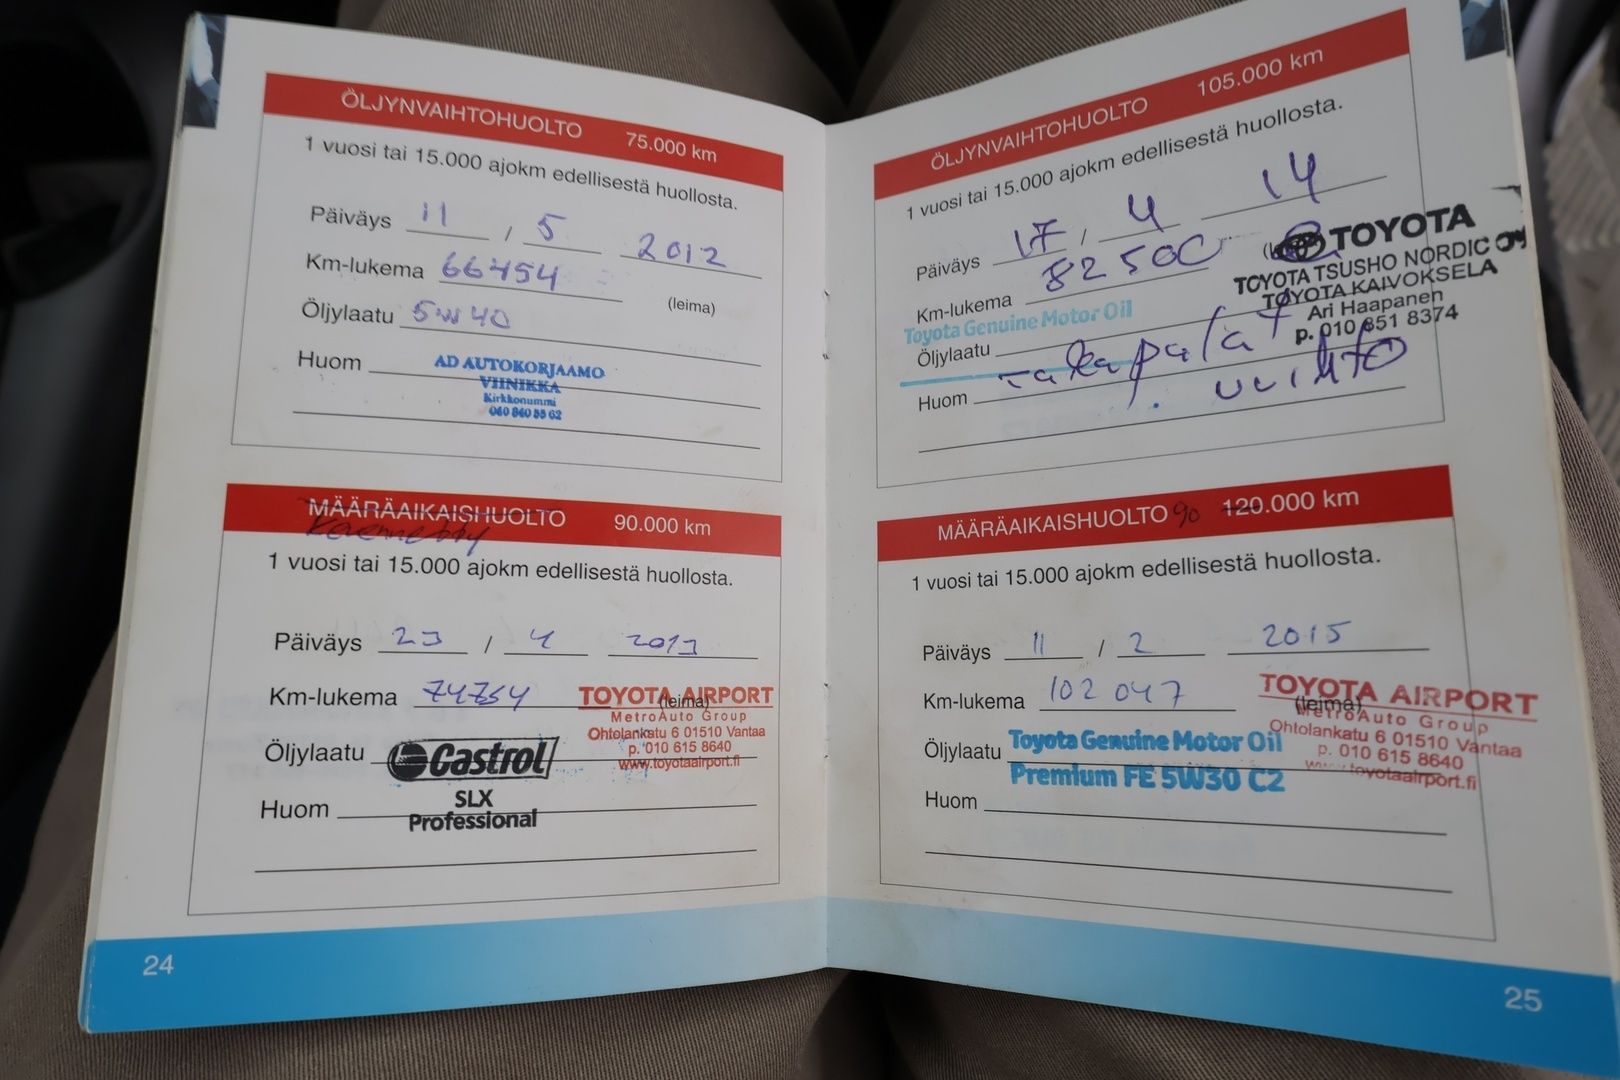 ÖLJYNVAIHTOHUOLTO 75.000 km
1 vuosi tai 15.000 ajokm edellisestä huollosta.
Päiväys 11 / 5 2012
Km-lukema 66454
(leima)
Öljylaatu 5W40
Huom
AD AUTOKORJAAMO
VIINIKKA
Kirkkonummi
040 840 55 62
MÄÄRÄAIKAISHUOLTO 90.000 km
1 vuosi tai 15.000 ajokm edellisestä huollosta.
Päiväys 23 / 4 2013
Km-lukema 74754
(leima)
TOYOTA AIRPORT
MetroAuto Group
Ohtolankatu 6 01510 Vantaa
p. 010 615 8640
www.toyotaairport.fi
Öljylaatu Castrol
SLX
Professional
Huom
24
ÖLJYNVAIHTOHUOLTO 105.000 km
1 vuosi tai 15.000 ajokm edellisestä huollosta.
Päiväys 17 / 4 14
Km-lukema 82500
TOYOTA
TOYOTA TSUSHO NORDIC OY
TOYOTA KAIVOKSELA
Ari Haapanen
p. 010 851 8374
Toyota Genuine Motor Oil
Öljylaatu
Huom
takapalat
vaihto
MÄÄRÄAIKAISHUOLTO 90 120.000 km
1 vuosi tai 15.000 ajokm edellisestä huollosta.
Päiväys 11 / 2 2015
Km-lukema 102 047
(leima)
TOYOTA AIRPORT
MetroAuto Group
Ohtolankatu 6 01510 Vantaa
p. 010 615 8640
www.toyotaairport.fi
Öljylaatu Toyota Genuine Motor Oil
Premium FE 5W30 C2
Huom
25